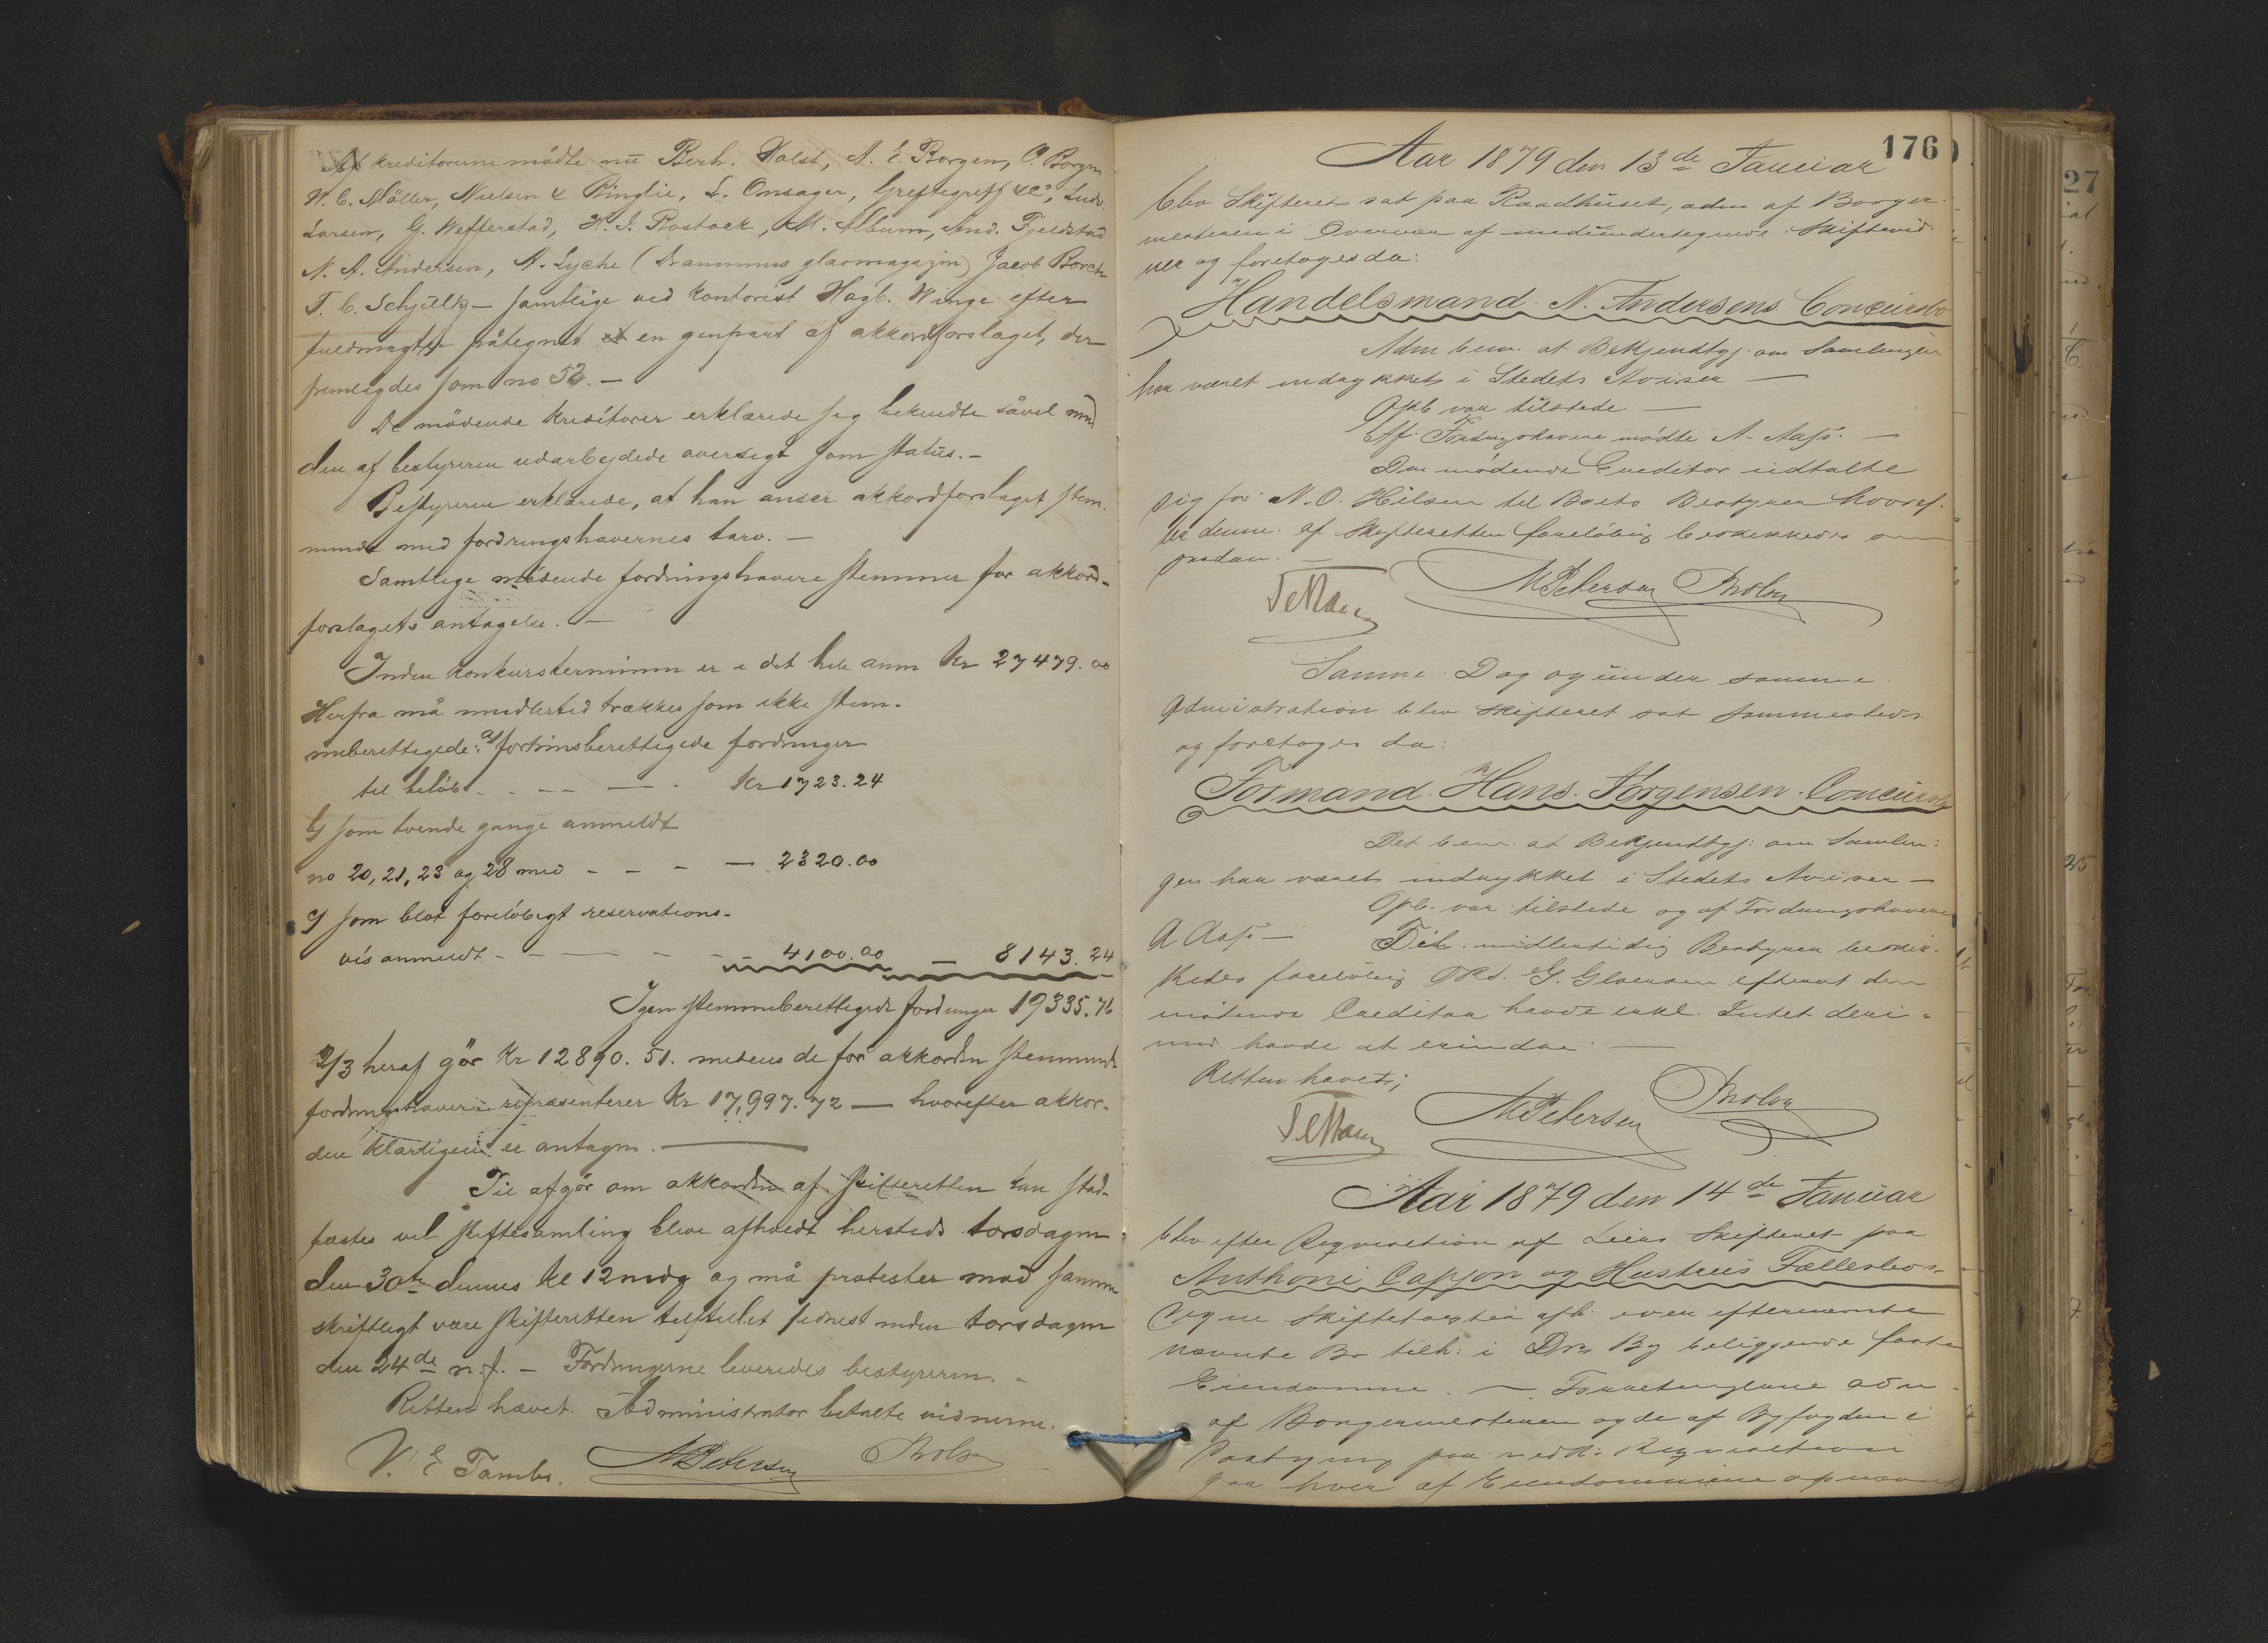 Af kreditorerne mödte nu Berh. Holst, A. E. Borgen, O. Borgen
W. C. Möller, Nielsen & Ringlie, L. Onsager, Greftegreff & Co, Ludv.
Larsen, G. Wefferstad, H. J. Rostock, M. Album, And. Fjeldstad
N. A. Andersen, A. Lyche (Drammens glasmagazin) Jacob Borch
T. C. Schjelle – samtlige ved kontorist Hagb. Winge efter
fuldmagter påtegnet en genpart af akkordforslaget, der
fremlagdes som no 52. –
De mödende kreditorer erklærede sig bekendte såvel med
den af bestyreren udarbejdede oversigt som status. –
Bestyreren erklærede, at han anser akkordforslaget stem-
mende med fordringshavernes tarv. –
Samtlige mödende fordringshavere stemmer for akkord-
forslagets antagelse. –
Inden konkursterminen er i det hele anm Kr 27479.00
Herfra må imidlertid trækkes som ikke stem-
meberettigede: a) fortrinsberettigede fordringer
til beløb - - — — - Kr 1723.24
b) som tvende gange anmeldt
no 20, 21, 23 og 28 med - - - — 2320.00
c) som blot foreløbigt reservations-
vis anmeldt - - — - - - 4100.00 — 8143.24
Igen stemmeberettigede fordringer 19335.76
2/3 heraf gör Kr 12890.51. medens de for akkorden stemmende
fordringshavere repræsenterer Kr 17,997.72 — hvorefter akkor-
den klarligen er antagen. —
Til afgör om akkorden af skifteretten kan stad-
fæstes vil skiftesamling blive afholdt hersteds torsdagen
den 30te dennes kl 12 mdg og må protester mod samme
skriftligt være skifteretten tilstillet senest inden torsdagen
den 24de n. f. – Fordringerne leveredes bestyreren. –
Retten hævet. Administrator betalte vidnerne.
V. E Tambs. M Petersen Brolsen
176
Aar 1879 den 13de Januar
blev Skifteret sat paa Raadhuset, adm af Borger-
mesteren i Overvær af medundertegnede Skiftevid-
ner og foretoges da:
Handelsmand N. Andersens Concursbo
Adm bem. at Bekjendtgj. om Samlingen
har været indrykket i Stedets Aviser —
Opb var tilstede —
Af Fordringshavere mödte A. Aass. —
Den mödende Creditor udtalte
sig for N. O. Hilsen til Boets Bestyrer hvoref-
ter denne af Skifteretten foreløbig beskikkedes som
saadan. —
M Petersen Brolsen
Samme Dag og under samme
Administration blev Skifteret sat sammesteds
og foretoges da:
Formand Hans Jörgensen Concursbo
Det bem. at Bekjendtgj: om Samlin:
gen har været indrykket i Stedets Aviser —
Opb. var tilstede og af Fordringshavere
A Aass — Til midlertidig Bestyrer beskik-
kedes foreløbig ORs. G. Gloersen efterat den
mödende Creditor havde erkl. Intet deri-
mod havde at erindre. —
Retten hævet;
M Petersen Brolsen
Aar 1879 den 14de Januar
blev efter Reqvisition af Liers Skifteret paa
Anthoni Cappon og Hustrues Fællesbos
vegne Skiftetaxtion afh. over efternævnte
nævnte Bo tilh: i Drs By beliggende faste
Eiendomme. — Forretningerne adm
af Borgermesteren og de af Byfogden i
Paategning paa vedk: Reqvisition
paa hver af Eiendommene opnævnte